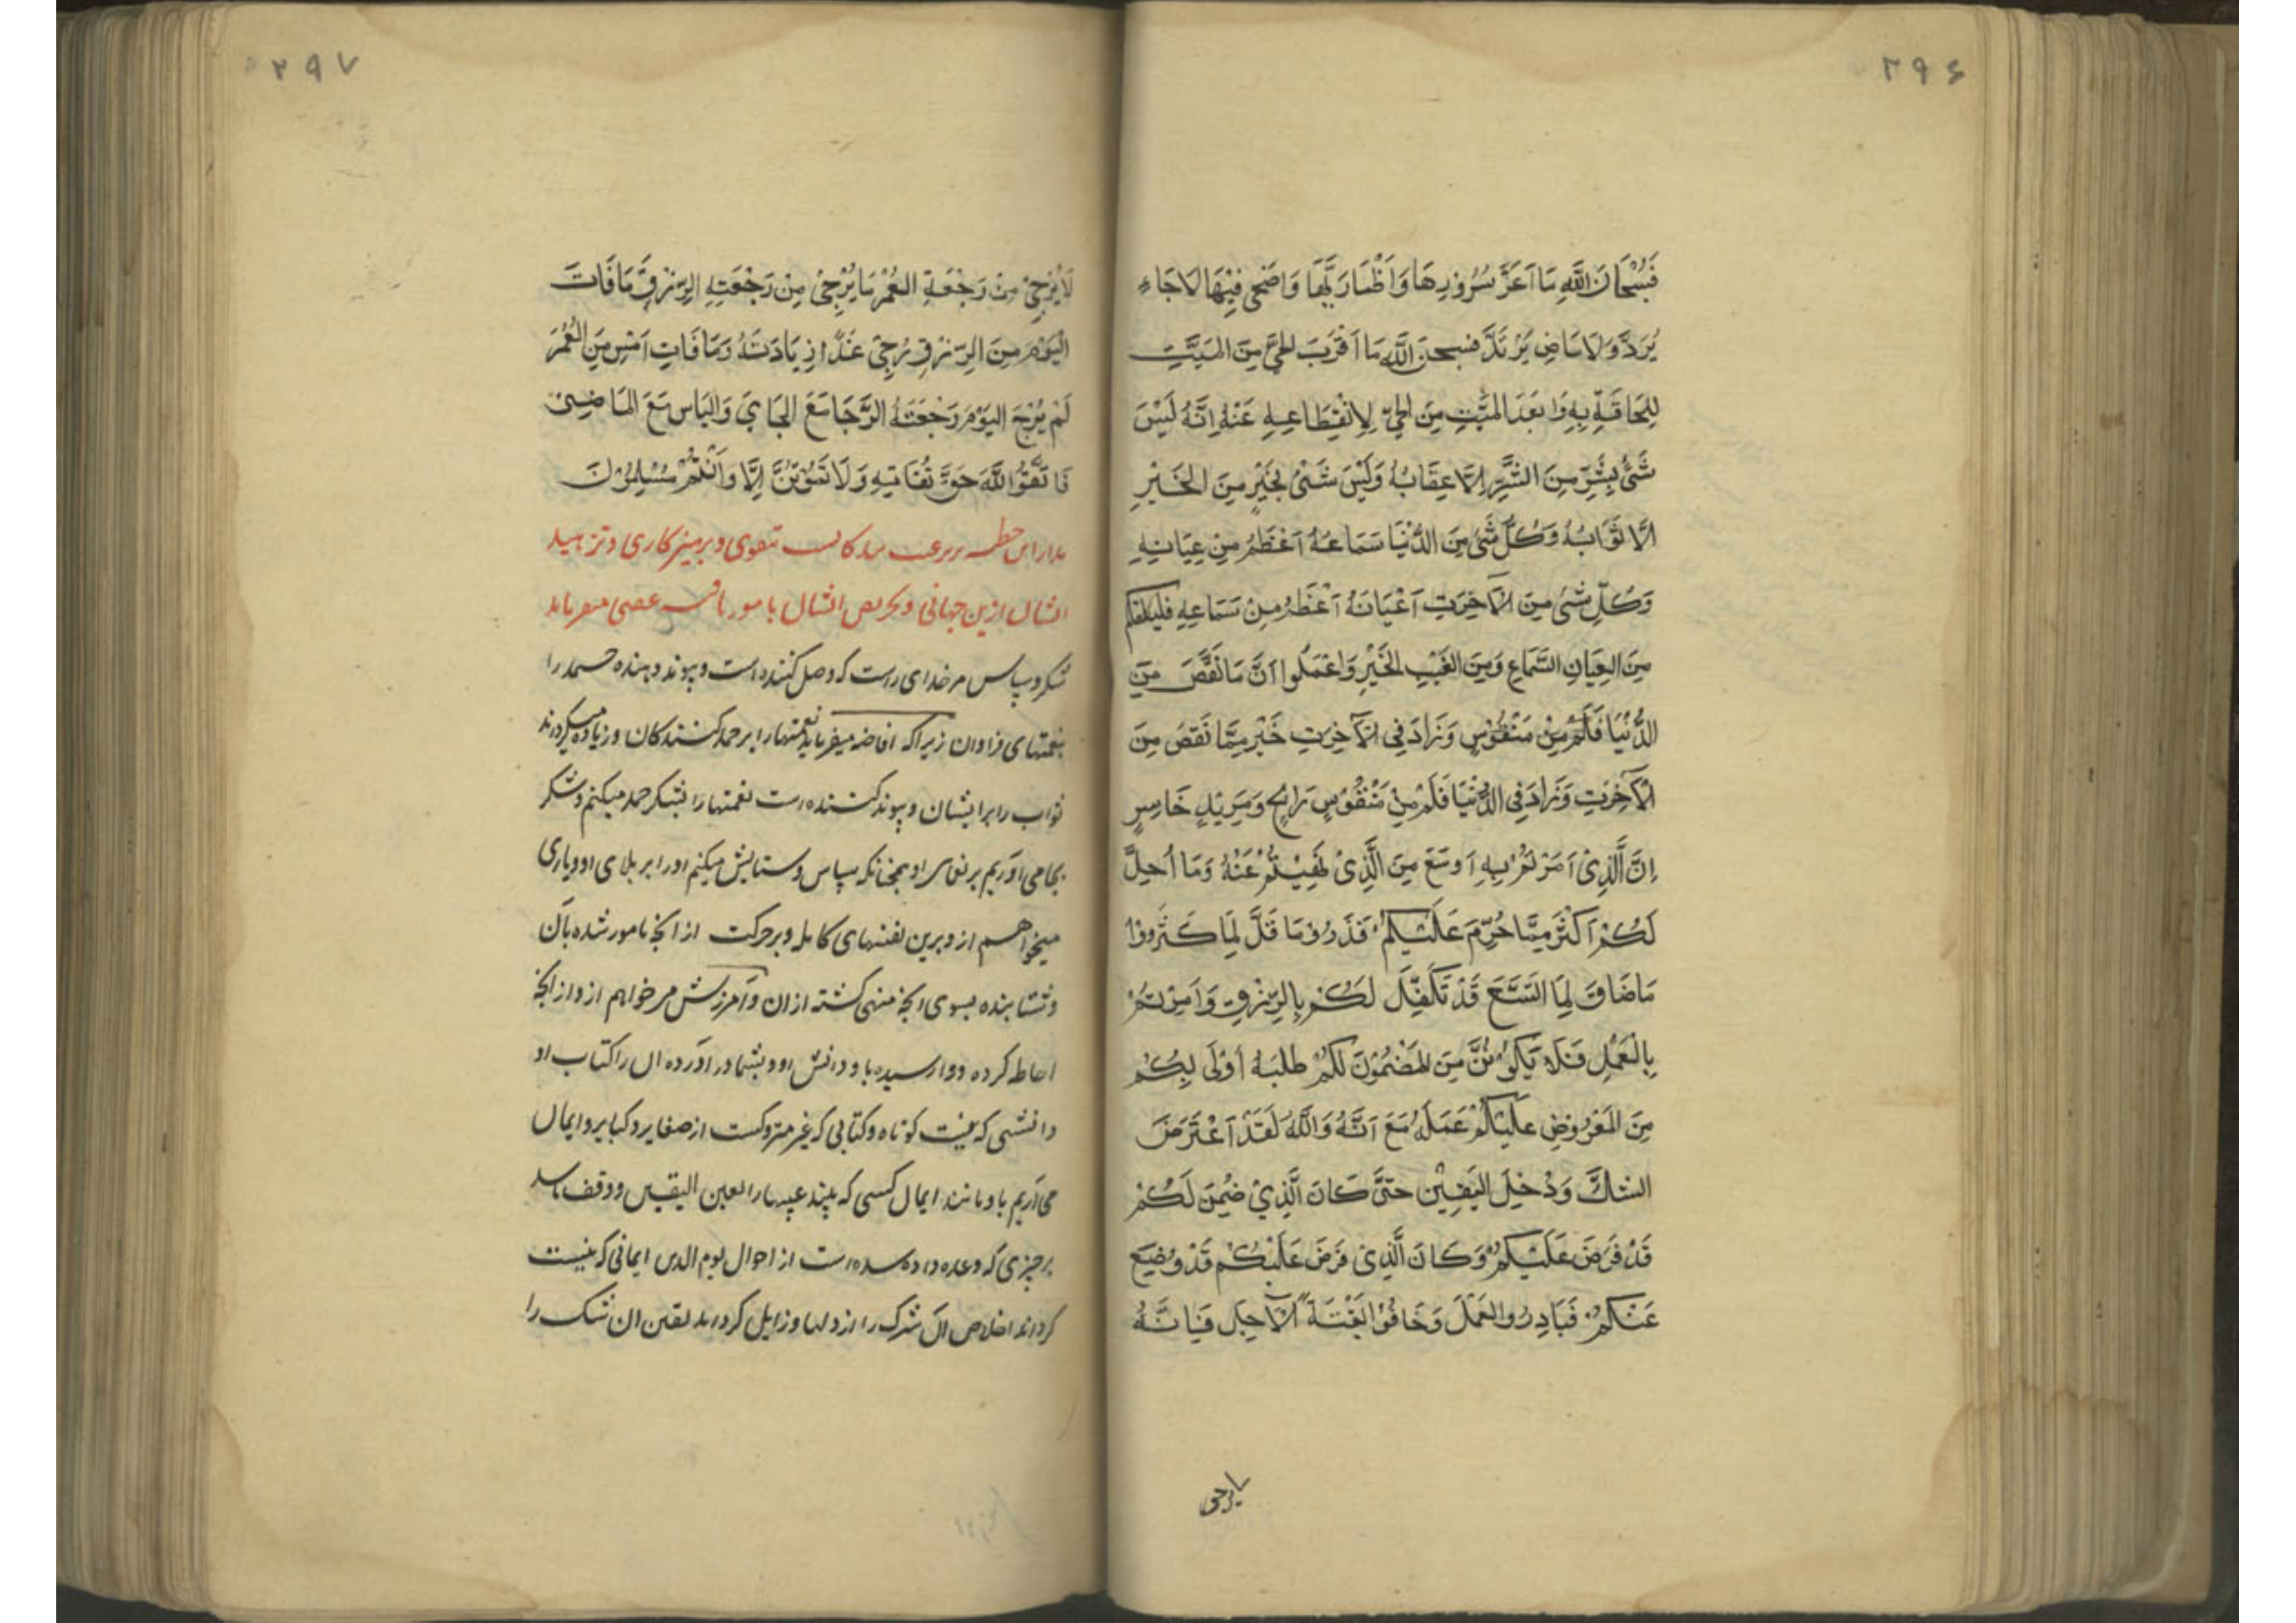 ۲۹۶
فَسُبْحَانَ اللَّهِ مَا اَعَزَّ سُرُوْرِهَا وَاَظْمَارَيِّهَا وَاَضْحٰى فِيْهَا لَا جَاءٍ
يُرَدَّ وَلَا مَاضٍ يَرْتَدَّ فسبحنَ اللَّهِ مَا اَقْرَبَ الحيَّ مِنَ المَيِّتِ
لِلِحَاقِهِ بِهِ وَابْعَدَ المَيِّتِ مِنَ الحيِّ لِاِنْقِطَاعِهِ عَنْهُ اِنَّهُ لَيْسَ
شَيْءٌ بِشَرٍّ مِنَ الشَّرِّ اِلَّا عِقَابُهُ وَلَيْسَ شَيْءٌ بِخَيْرٍ مِنَ الخَيْرِ
اِلَّا ثَوَابُهُ وَكُلُّ شَيْءٍ مِنَ الدُّنْيَا سَمَاعُهُ اَعْظَمُ مِنْ عِيَانِهِ
وَكُلِّ شَيْءٍ مِنَ الْآخِرَتِ اَعْيَانَهُ اَعْظَمُ مِنْ سَمَاعِهِ فليكفكم
مِنَ العِيَانِ السَّمَاعِ وَمِنَ الغَيْبِ الخَيْرِ وَاعْمَلُوا اَنَّ مَا نَقَصَ مِنَ
الدُّنْيَا فَكَمْ مِنْ مَنْقُوْسٍ وَزَادَ فِي الْآخِرَتِ خَيْرٌ مِمَّا نَقَصَ مِنَ
الْآخِرَتِ وَزَادَ فِي الدُّنْيَا فَكَمْ مِنْ مَنْقُوْسٍ رَابِحٍ وَمَزِيْدٍ خَاسِرٍ
اِنَّ الَّذِيْ اُمِرْتُمْ بِهِ اَوسَعَ مِنَ الَّذِيْ نُهِيْتُمْ عَنْهُ وَمَا اُحِلَّ
لَكُمْ اَكْثَرَ مِمَّا حُرِّمَ عَلَيْكُمْ فَذَرُوْمَا قَلَّ لِمَا كَثُرُوْا
مَا ضَاقَ لِمَا اتَّسَعَ قَدْ تَكَفَّلَ لَكُمْ بِالرِّزْقِ وَاُمِرْتُمْ
بِالْعَمْلِ فَلَا يَكُوْنُنَّ مِنَ المَضْمُوْنَ لَكُمْ طَلَبَهُ اَوْلٰى بِكُمْ
مِنَ المَفْرُوْضِ عَلَيْكُمْ عَمَلَهُ مَعَ اَنَّهُ وَاللَّهُ لَقَدْ اَعْتَرَضَ
الشَّكَّ وَدْخِلَ اليَقِيْنَ حَتّٰى كَانَ الَّذِيْ ضُمِنَ لَكُمْ
قَدْ فَرَضَ عَلَيْكُمْ وَكَانَ الَّذِيْ فَرَضَ عَلَيْكُمْ قَدْ وُضِعَ
عَنْكُمْ فَبَادِرُوا العَمَلَ وَخَافُوْا بَغْتَةَ الْاَجَلِ فَاِنَّهُ
لا يرجى
۲۹۷
لَا يُرْجٰى مِنْ رَجْعَةِ العُمْرِ مَا يُرْجٰى مِنْ رَجْعَتِهِ الرِّزْقِ مَا فَاتَ
اليَوْمَ مِنَ الرِّزْقِ رُجِيَ غَدًا زِيَادَتُهُ وَمَا فَاتِ اَمْسِ مِنَ العُمْرَ
لَمْ يُرْجَ اليَوْمَ رَجْعَتَهُ الرَّجَا مَعَ الجَايَ وَاليَاسَ مَعَ المَاضِيْ
فَاتَّقُوا اللَّهَ حَقَّ تُقَاتِهِ وَلَا تَمُوْتُنَّ اِلَّا وَاَنْتُمْ مُسْلِمُوْنَ
مدار این خطبه بر ترغیب بندگانست بتقوی وپرهیزکاری وتزهید
ایشان ازین جهانی وتحریص ایشان بامور عقبی میفرماید
شکر وسپاس مر خدای راست که وصل کننده است وپیوند دهنده حمد را
بنعمتهای فراوان زیراکه افاضه میفرماید نعمتها را بر حمد کنندکان وزیاده میکرداند
ثواب را بر ایشان وپیوند کننده است نعمتها را بشکر حمد میکنم وشکر
بجا می آوریم بر نعمای او همچنانکه سپاس وستایش میکنم او را بر بلای او ویاری
میخواهم از او برین نفسهای کاهله وبر حرکت از انچه مامور شده بآن
وشتابنده بسوی انچه منهی کشته از ان وآمرزش میخواهم از او از انچه
احاطه کرده و وارسیده باو دانش او وبشمار در آورده ان را کتاب او
دانشی که نیست کوتاه وکتابی که غیر متروکست از صغایر وکبایر وایمان
می آریم باو مانند ایمان کسی که بیند غیبها را بعین الیقین وواقف باشد
بر چیزی که وعده داده شده است از احوال یوم الدین ایمانی که نیست
کرداند اخلاص آن شرک را از دلها وزایل کرداند یقین ان شک را